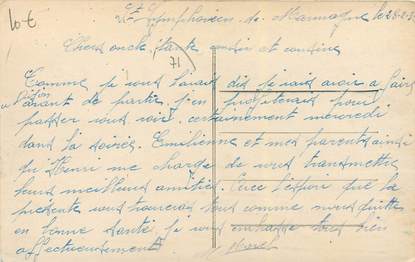 10 €
St Symphorien de Marmagne le 28-2-3
Chers oncle, tante cousin et cousine
71
Comme je vous l'avais dit je vais avoir a faire
avant de partir j'en profiterais pour
passer vous voir certainement mercredi
dans la soirée. Emilienne et mes parents ainsi
qu'Henri me charge de vous transmettre
leurs meilleurs amitiés. Avec l'espoir que la
présente vous trouverai tous comme nous quitte
en bonne santé je vous embrasse tous bien
affectueusement